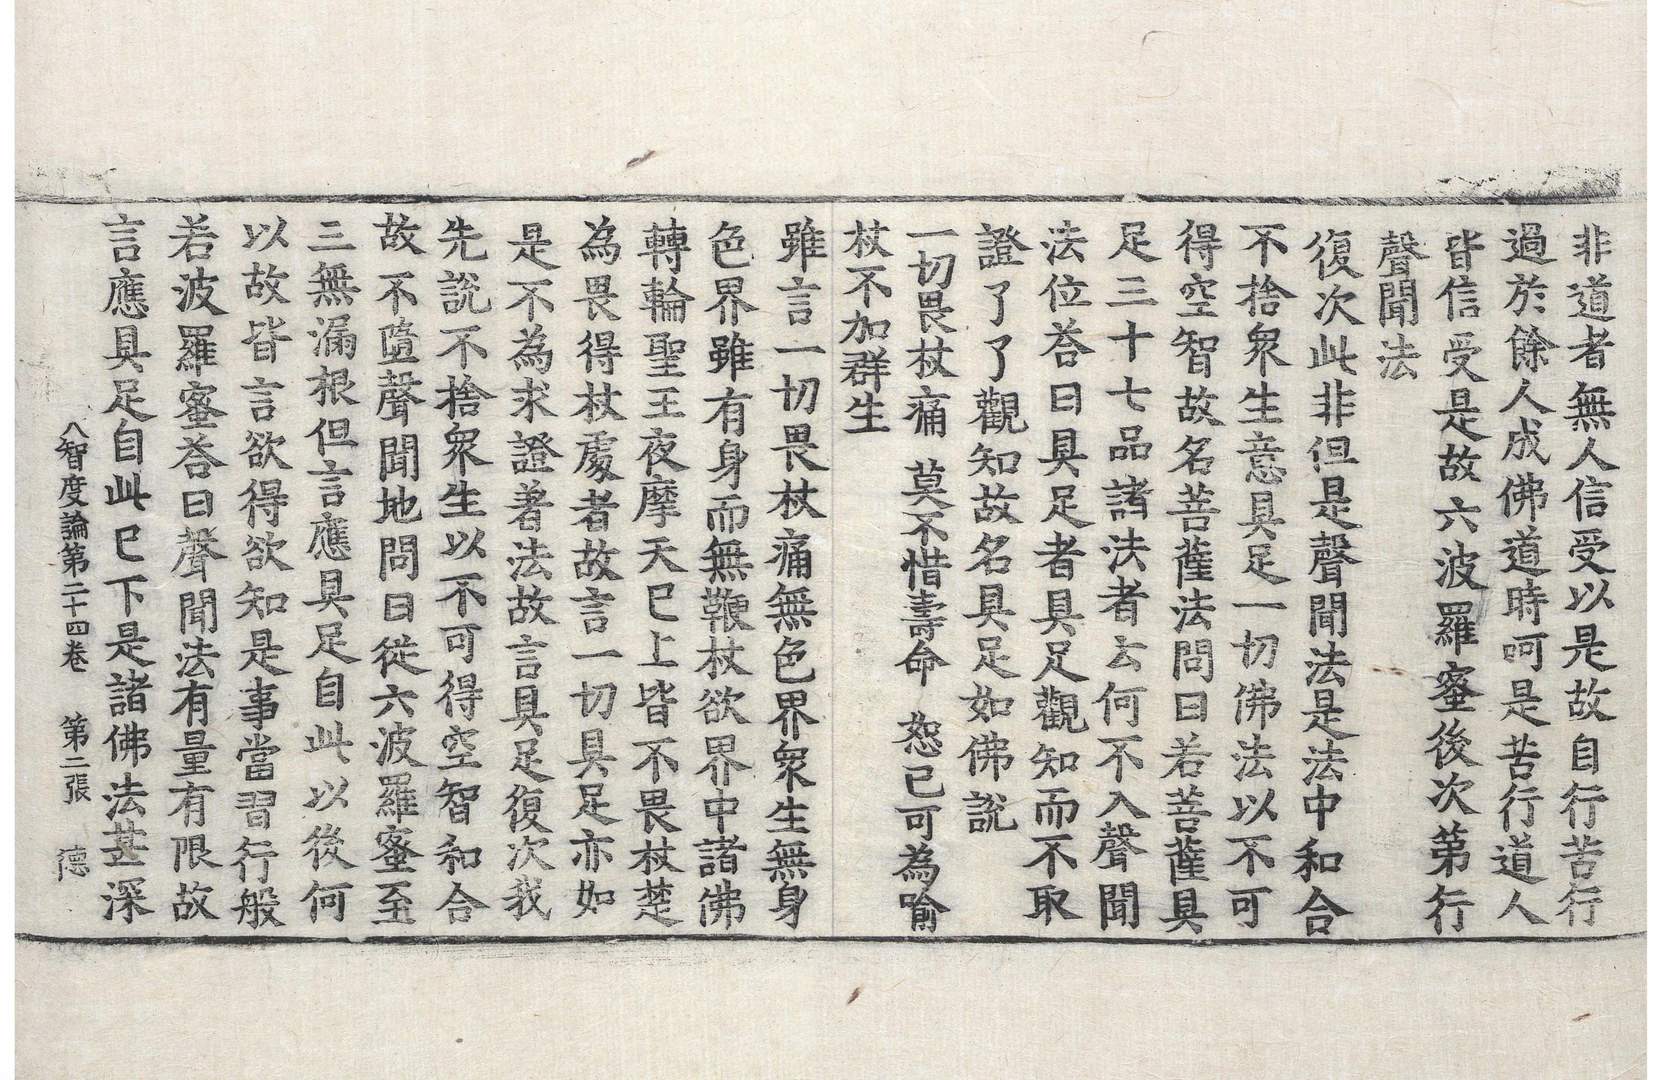 非道者無人信受以是故自行苦行
過於餘人成佛道時呵是苦行道人
皆信受是故六波羅蜜後次第行
聲聞法
復次此非但是聲聞法是法中和合
不捨衆生意具足一切佛法以不可
得空智故名菩薩法問曰若菩薩具
足三十七品諸法者云何不入聲聞
法位荅曰具足者具足觀知而不取
證了了觀知故名具足如佛說
一切畏杖痛 莫不惜壽命 恕己可為喻
杖不加群生
雖言一切畏杖痛無色界衆生無身
色界雖有身而無鞭杖欲界中諸佛
轉輪聖王夜摩天已上皆不畏杖楚
為畏得杖處者故言一切具足亦如
是不為求證著法故言具足復次我
先說不捨衆生以不可得空智和合
故不墮聲聞地問曰從六波羅蜜至
三無漏根但言應具足自此以後何
以故皆言欲得欲知是事當習行般
若波羅蜜荅曰聲聞法有量有限故
言應具足自此已下是諸佛法甚深
大智度論第二十四卷 第二張 德